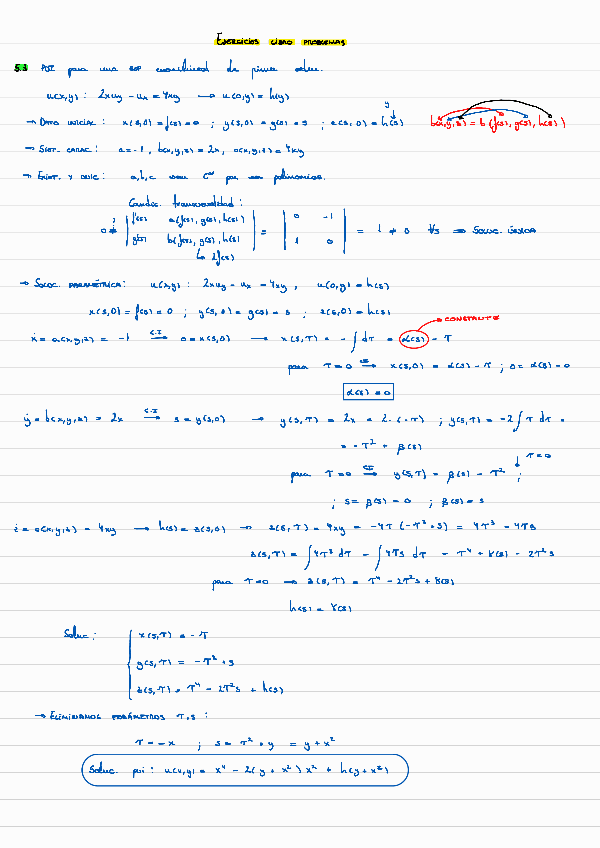 EJERCICIOS LIBRO PROBLEMAS
5.3 PVI para una EDP cuasilineal de primer orden.
u(x,y) : 2xuy - ux = 4xy → u(0,y) = h(y)
→ DATO INICIAL : x(s,0) = f(s) = 0 ; y(s,0) = g(s) = s ; z(s,0) = h(s)
y
b(x,y,z) = b(f(s), g(s), h(s))
→ SIST. CARAC : a = -1 , b(x,y,z) = 2x , c(x,y,z) = 4xy
→ EXIST. Y UNIC : a,b,c son C∞ por ser polinomios.
Condic. transversalidad :
0 ≠ | f'(s) a(f(s), g(s), h(s)) | = | 0 -1 | = 1 ≠ 0 ∀s ⇒ SOLUC. ÚNICA
| g'(s) b(f(s), g(s), h(s)) | | 1 0 |
↳ 2f(s)
→ SOLUC. PARAMÉTRICA : u(x,y) : 2xuy - ux = 4xy , u(0,y) = h(s)
x(s,0) = f(s) = 0 ; y(s,0) = g(s) = s ; z(s,0) = h(s)
CONSTANTE
ẋ = a(x,y,z) = -1 C.I → 0 = x(s,0) → x(s,τ) = - ∫ dτ = α(s) - τ
para τ=0 C.I → x(s,0) = α(s) - τ ; 0 = α(s) - 0
α(s) = 0
ẏ = b(x,y,z) = 2x C.I → s = y(s,0) → y(s,τ) = 2x = 2·(-τ) ; y(s,τ) = -2 ∫ τ dτ =
= -τ² + β(s)
τ=0
para τ=0 C.I → y(s,τ) = β(s) - τ² ;
; s = β(s) - 0 ; β(s) = s
ż = c(x,y,z) = 4xy → h(s) = z(s,0) → z(s,τ) = 4xy = -4τ (-τ² + s) = 4τ³ - 4τs
z(s,τ) = ∫ 4τ³ dτ - ∫ 4τs dτ = τ⁴ + γ(s) - 2τ²s
para τ=0 → z(s,τ) = τ⁴ - 2τ²s + γ(s)
h(s) = γ(s)
Soluc :
x(s,τ) = -τ
y(s,τ) = -τ² + s
z(s,τ) = τ⁴ - 2τ²s + h(s)
→ ELIMINAMOS PARÁMETROS τ,s :
τ = -x ; s = τ² + y = y + x²
Soluc. pvi : u(x,y) = x⁴ - 2(y + x²) x² + h(y + x²)